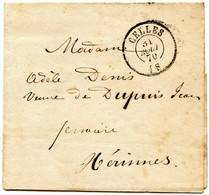 CELLES
31
AOUT
70
1 S
Madame
Adèle Denis
Veuve de Dupuis Jean
fermière
Hérinnes